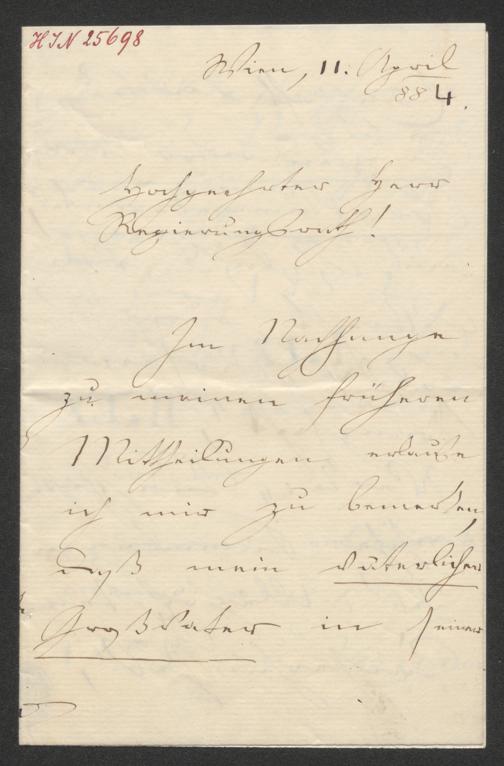 HIN 25698
Wien, 11. April
884.
Hochgeehrter Herr
Regierungsrath!
Im Nachhange
zu meinen früheren
Mittheilungen erlaube
ich mir zu bemerken,
daß mein väterlicher
Großvater in seiner